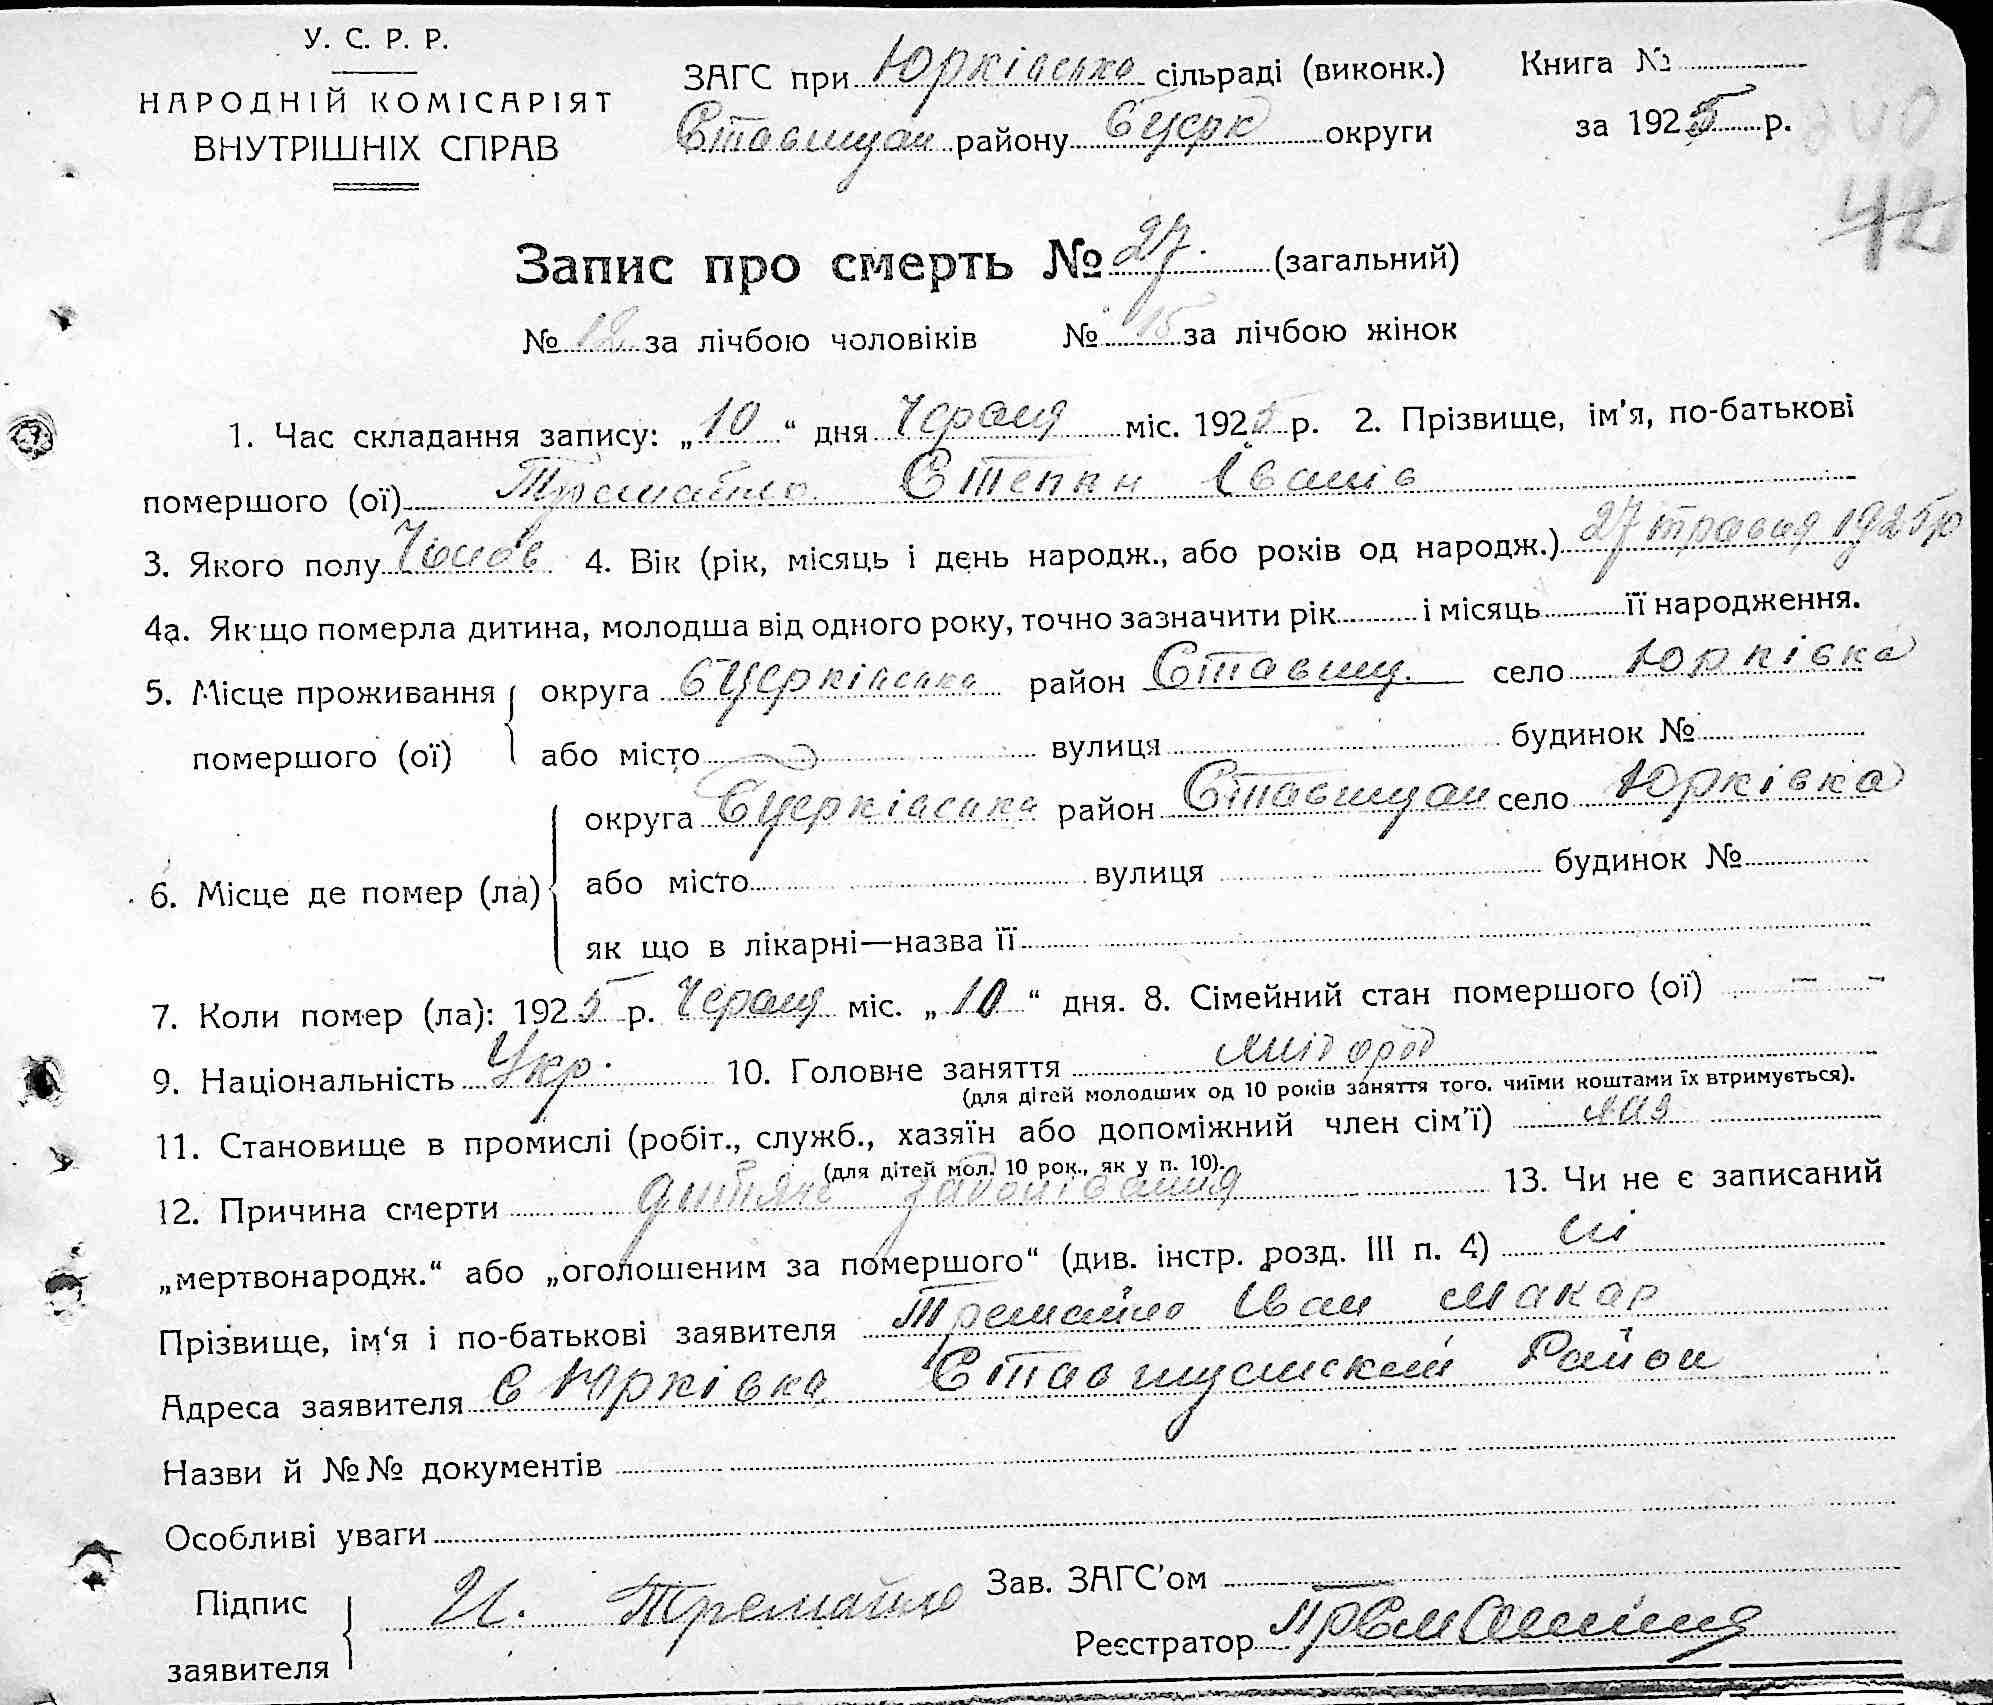 У. С. Р. Р.
НАРОДНІЙ КОМІСАРІЯТ
ВНУТРІШНІХ СПРАВ
ЗАГС при Юрківська сільраді (виконк.) Книга №
Ставищан району Бцерк округи за 1925 р.
42
Запис про смерть № 27. (загальний)
№ 12 за лічбою чоловіків № 15 за лічбою жінок
1. Час складання запису: „10“ дня Червня міс. 1925 р. 2. Прізвище, ім'я, по-батькові
помершого (ої) Степан Іванів
3. Якого полу Чолов 4. Вік (рік, місяць і день народж., або років од народж.) 27 травня 1925 р
4а. Як що померла дитина, молодша від одного року, точно зазначити рік і місяць її народження.
5. Місце проживання округа Бцерківська район Ставищ. село Юрківка
помершого (ої) або місто вулиця будинок №
округа Бцерківська район Ставищан село Юрківка
6. Місце де помер (ла) або місто вулиця будинок №
як що в лікарні—назва її
7. Коли помер (ла): 1925 р. Червня міс. „10“ дня. 8. Сімейний стан помершого (ої) — -
9. Національність Укр. 10. Головне заняття хлібороб
(для дітей молодших од 10 років заняття того. чиїми коштами їх втримується).
11. Становище в промислі (робіт., служб., хазяїн або допоміжний член сім'ї) хаз
(для дітей мол. 10 рок., як у п. 10).
12. Причина смерти дитяче заболівання 13. Чи не є записаний
„мертвонародж.“ або „оголошеним за помершого“ (див. інстр. розд. III п. 4) ні
Прізвище, ім'я і по-батькові заявителя Тремайло Іван Макар
Адреса заявителя с Юрківка Район
Назви й №№ документів
Особливі уваги
Підпис И. Тремайло Зав. ЗАГС'ом
заявителя Реєстратор